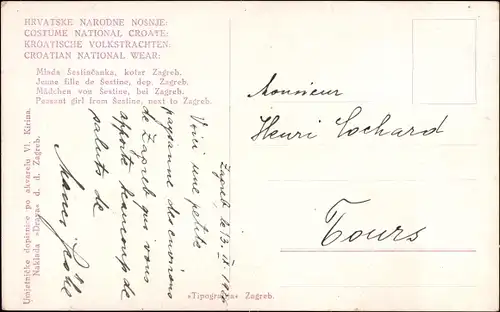 HRVATSKE NARODNE NOŠNJE:
COSTUME NATIONAL CROATE:
KROATISCHE VOLKSTRACHTEN:
CROATIAN NATIONAL WEAR:
Mlada Šestinčanka, kotar Zagreb.
Jeune fille de Šestine, dep. Zagreb.
Mädchen von Šestine, bei Zagreb.
Peasant girl from Šestine, next to Zagreb.
Umjetničke dopisnice po akvarelu Vl. Kirina.
Naklada »Drava« d. d. Zagreb.
Zagreb, le 13. II
Voici une petite
paysanne des environs
de Zagreb qui vous
apporte beaucoup de
saluts de
Monsieur
Henri Cochard
Tours
»Tipografija« Zagreb.